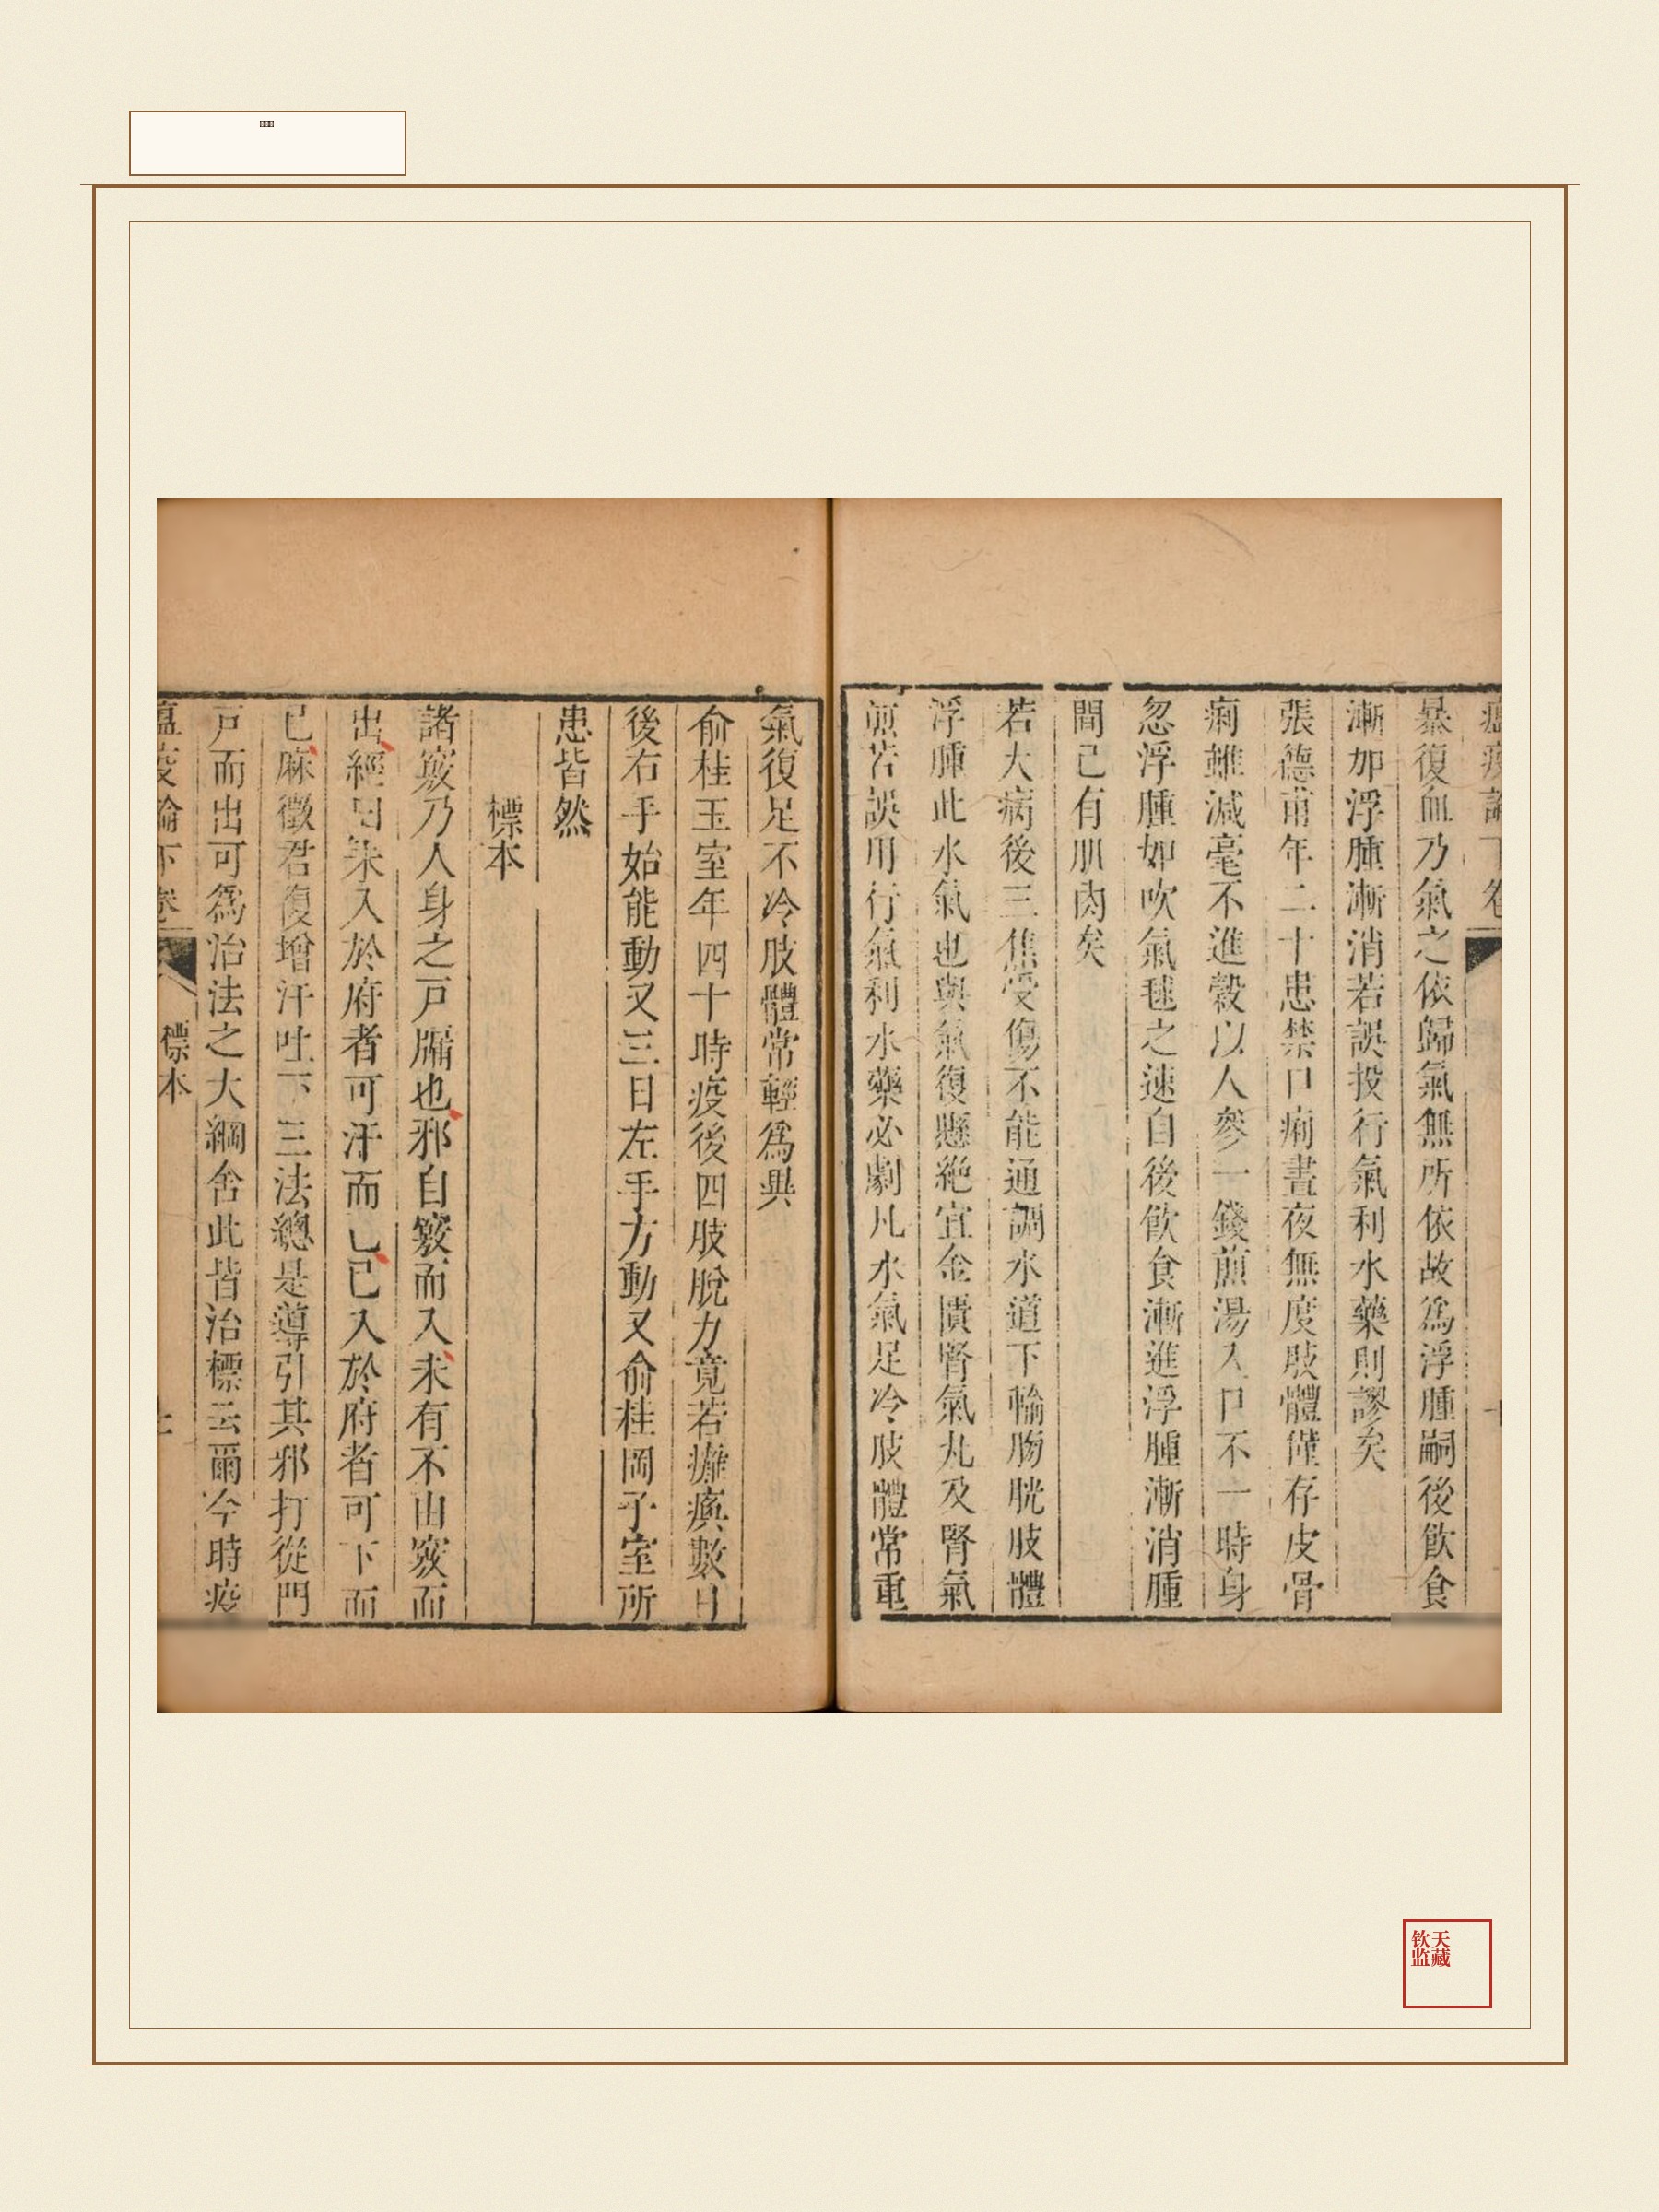 暴復血乃氣之依歸氣無所依故為浮腫嗣後飲食
漸加浮腫漸消若誤投行氣利水藥則謬矣
張德甫年二十患禁口痢晝夜無度肢體僅存皮骨
痢雖減毫不進穀以人參一錢煎湯入口不一時身
忽浮腫如吹氣毬之速自後飲食漸進浮腫漸消腫
間已有肌肉矣
若大病後三焦受傷不能通調水道下輸膀胱肢體
浮腫此水氣也與氣復懸絕宜金匱腎氣丸及腎氣
煎若誤用行氣利水藥必劇凡水氣足冷肢體常重
氣復足不冷肢體常輕為異
俞桂玉室年四十時疫後四肢脫力竟若癱瘓數日
後右手始能動又三日左手方動又俞桂岡子室所
患皆然
標本
諸竅乃人身之戸牖也邪自竅而入未有不由竅而
出經曰未入於府者可汗而已已入於府者可下而
已麻徵君復增汗吐下三法總是導引其邪打從門
戸而出可為治法之大綱舍此皆治標云爾今時疫
標本
钦天
监藏